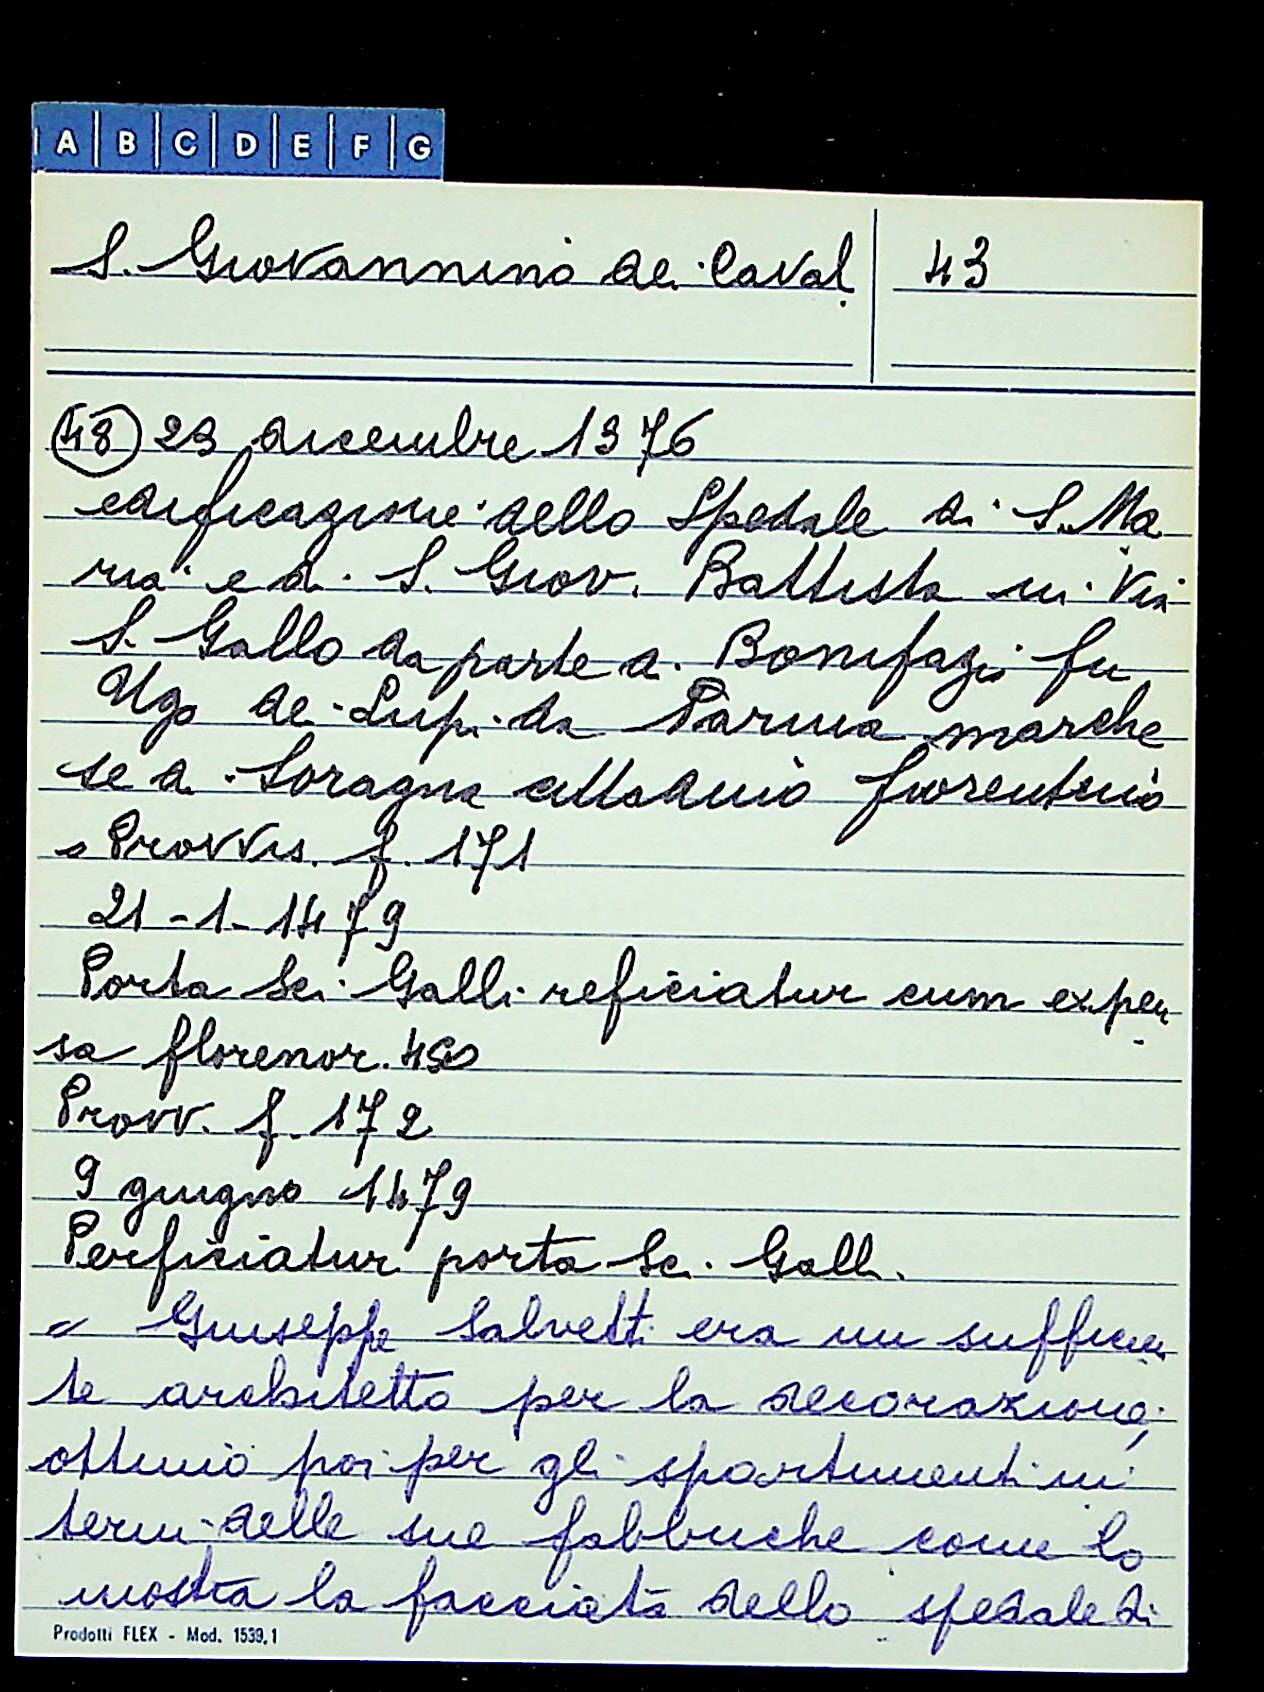 A B C D E F G
S. Giovannino dei Caval. 43
48 23 dicembre 1376
edificazione dello Spedale di S. Ma
ria e di S. Giov. Battista in Via
S. Gallo da parte di Bonifazi fu
Ugo dei Lupi da Parma marche
se di Soragna cittadino fiorentino
Provvis. f. 171
21-1-1479
Porta Sci. Galli reficiatur cum expen
sa florenor. 400
Provv. f. 172
9 giugno 1479
Perficiatur porta Sci. Galli.
" Giuseppe Salvetti era un sufficien
te architetto per la decorazione,
ottimo poi per gli spartimenti in
terni delle sue fabbriche come lo
mostra la facciata dello spedale di
Prodotti FLEX - Mod. 1539,1